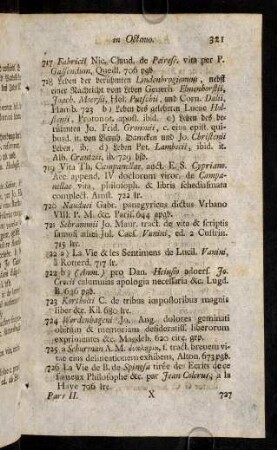 in Octavo. 321
717 Fabricii Nic. Claud. de Peiresc. vita per P.
Gassendum, Quedl. 706 pgb.
718 Leben der berühmten Lindenbrogiorum, nebst
einer Nachricht vom Leben Geverh. Elmenhorstii,
Joach. Morsii, Hel. Putschii, und Corn. Dalii,
Hamb. 723 b) Leben des gelehrten Lucae Hol-
stenii, Protonot. apost. ibid. c) Leben des be-
rühmten Jo. Frid. Gronovii, c. eius epist. qui-
busd. it. von Bernh. und Jo. Christoni
Leben, ib. d) Leben Pet. Lambecii, ibid. it.
Alb. Crantzii, ib. 729 hlb.
719 Vita Th. Campanellae, auct. E. S. Cypriano.
Acc. append. IV doctorum viror. de Campa-
nellae vita, philosoph. & libris schediasmata
complect. Amst. 722 hfr.
720 Naudaei Gabr. panegyricus dictus Vrbano
VIII. P. M. &c. Paris. 644 pgb.
721 Schrammii Jo. Maur. tract. de vita & scriptis
famosi athei Jul. Caes. Vanini, ed. 2 Custrin.
715 lfr.
722 a) La Vie & les Sentimens de Lucil. Vanini,
à Roterd. 717 lfr.
722 b) (Anon.) pro Dan. Heinsio advers. Jo.
Croii calumnias apologia necessaria &c. Lugd.
B. 646 pgb.
723 Kortholti C. de tribus impostoribus magnis
liber &c. Kil. 680 lfr.
724 Werdenhagens Jo. Ang. dolores geminati
obitum & memoriam desideratiss. liberorum
exprimentes &c. Magdeb. 620 cite. grp.
725 a Schurman A. M. s. tract. brevem vi-
tae eius delineationem exhibens, Alton. 673 pgb.
726 La Vie de B. de Spinosa tirée des Ecrits de ce
fameux Philosophe &c. par Jean Colerus, a la
Haye 706 lfr.
Pars II. X 727